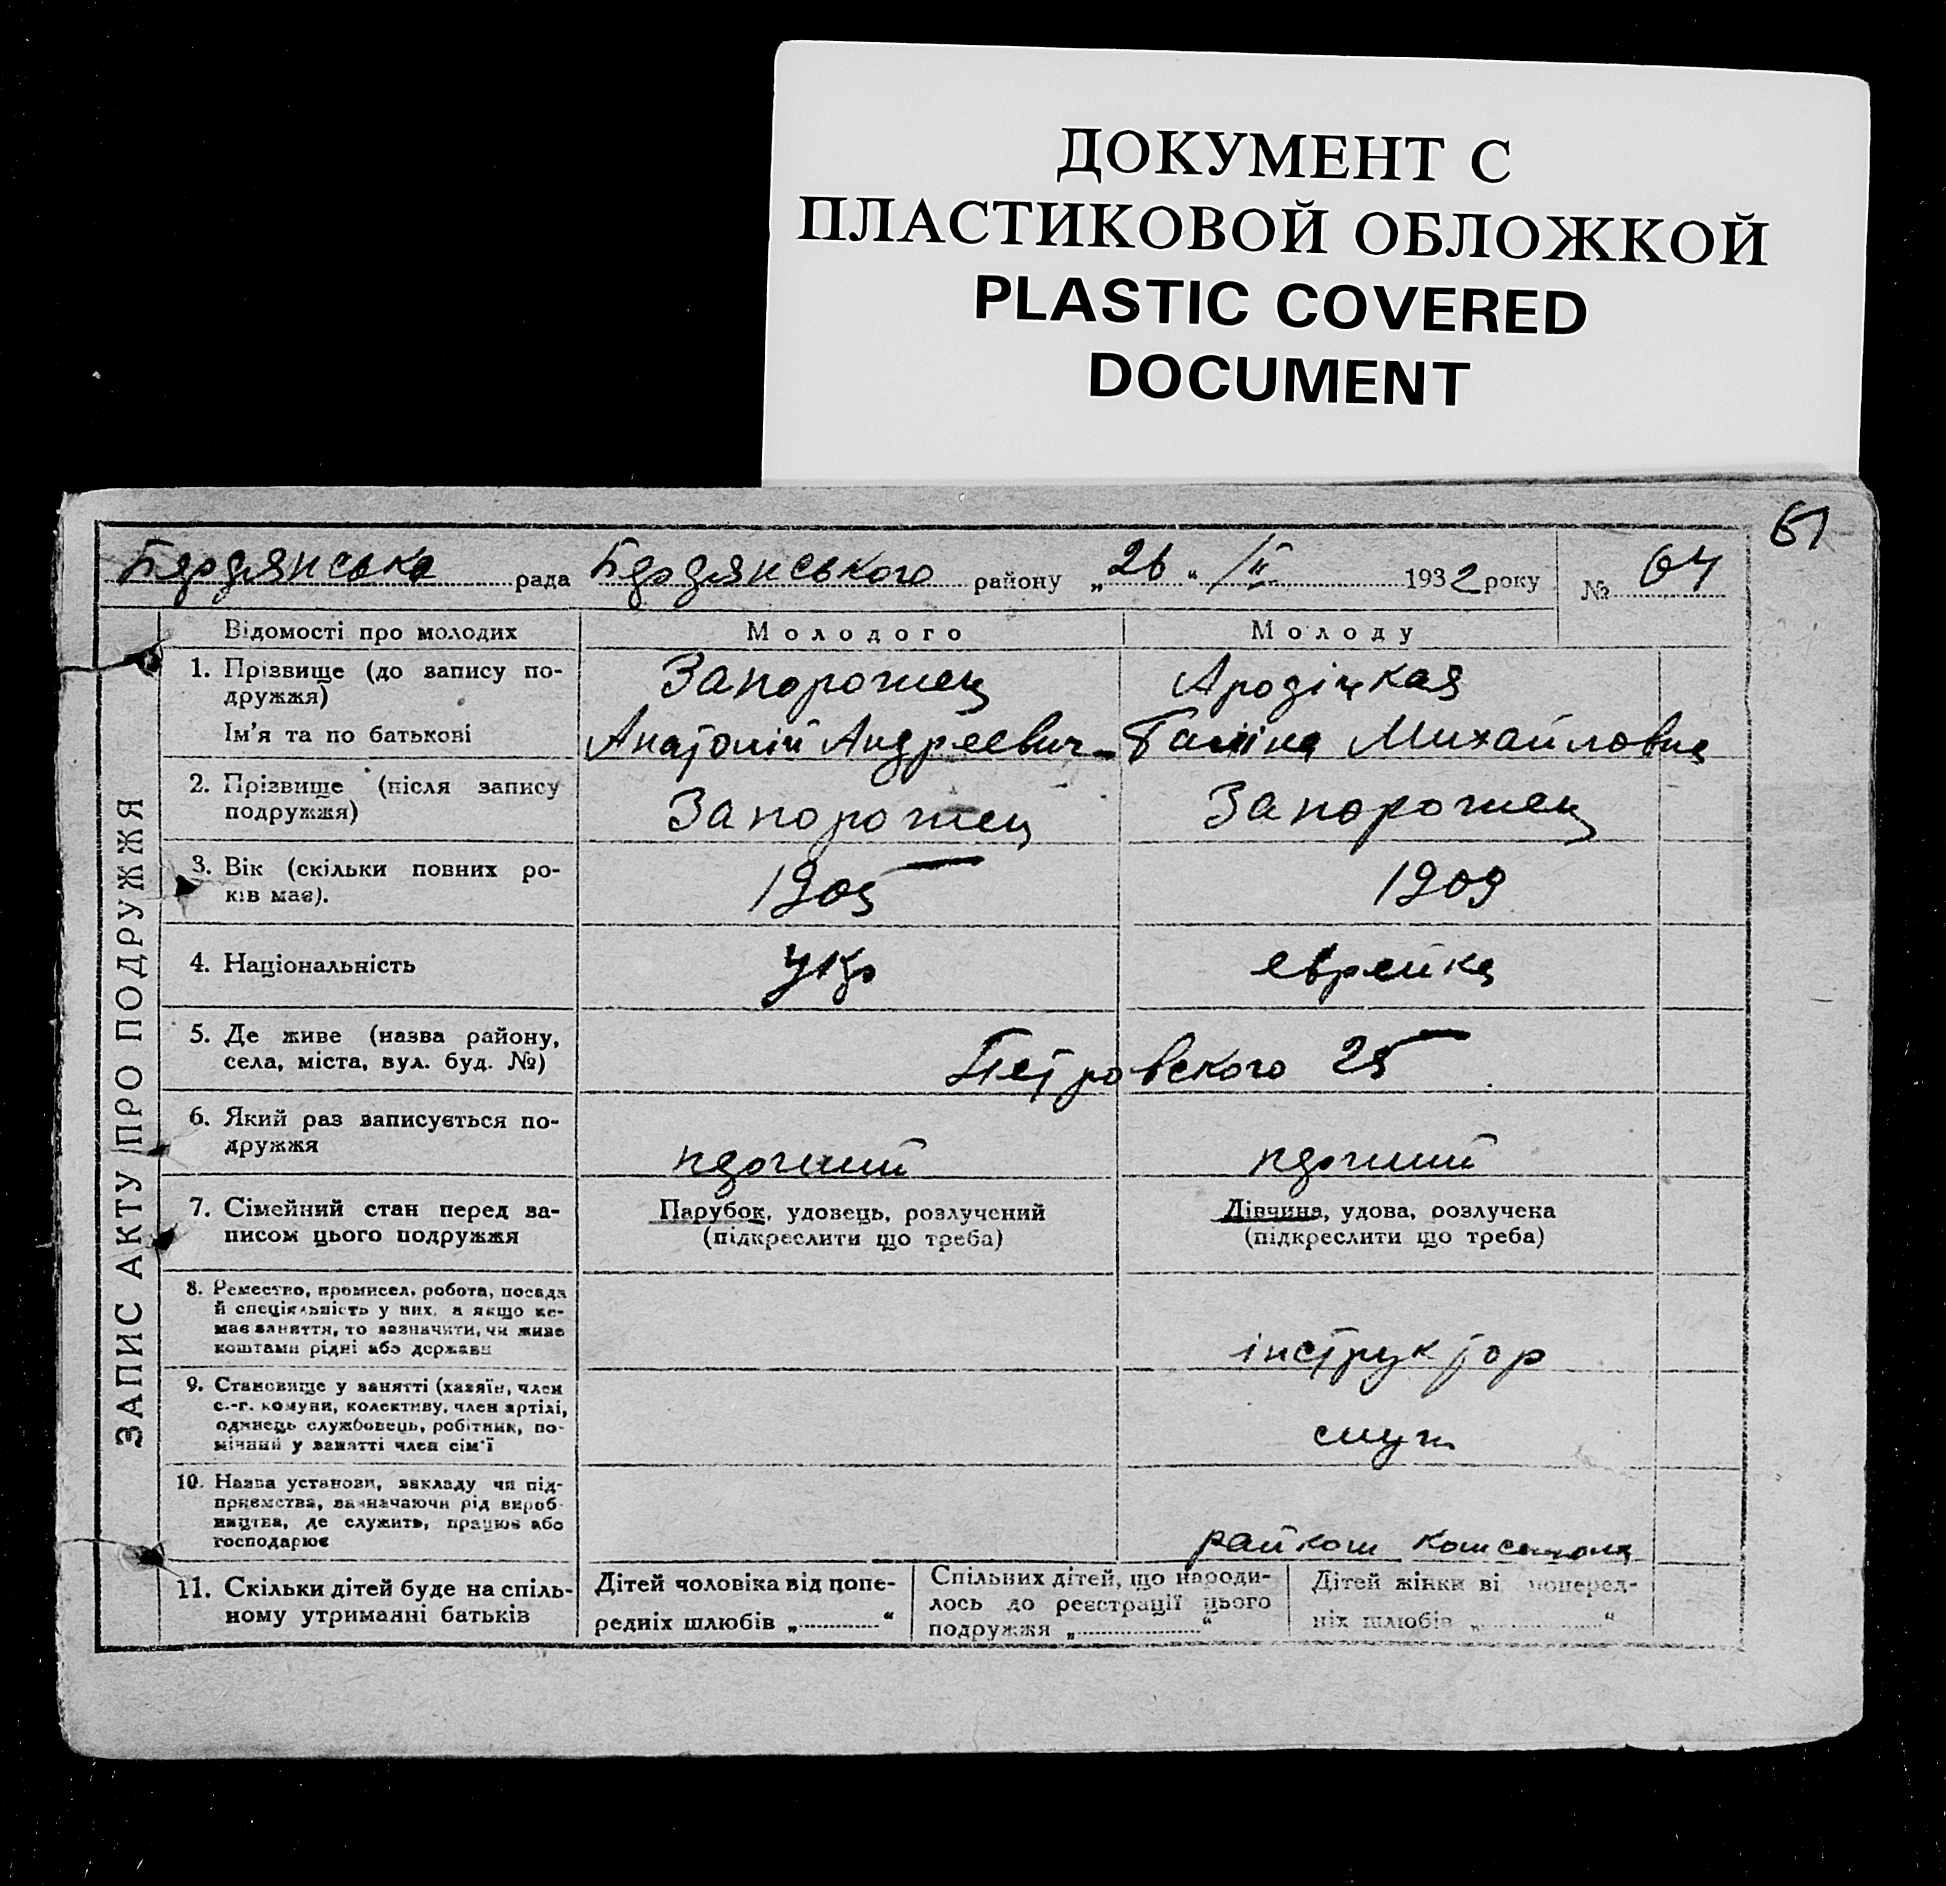 ДОКУМЕНТ С
ПЛАСТИКОВОЙ ОБЛОЖКОЙ
PLASTIC COVERED
DOCUMENT
61
Бердянська рада Бердянського району „26“ /II 1932 року № 64
ЗАПИС АКТУ ПРО ПОДРУЖЖЯ
Відомості про молодих Молодого Молоду
1. Прізвище (до запису по-
дружжя) Запорожец
Ім'я та по батькові Анатолій Андреевич Галіна Михайловна
2. Прізвище (після запису
подружжя) Запорожец Запорожец
3. Вік (скільки повних ро-
ків має). 1905 1909
4. Національність укр еврейка
5. Де живе (назва району,
села, міста, вул. буд. №) Петровского 25
6. Який раз записується по-
дружжя перший перший
7. Сімейний стан перед за-
писом цього подружжя
Парубок, удовець, розлучений
(підкреслити що треба)
Дівчина, удова, розлучена
(підкреслити що треба)
8. Ремество, промисел, робота, посада
й спеціяльність у них, а якщо не-
має заняття, то зазначити, чи живе
коштами рідні або держави
інструктор
9. Становище у занятті (хазяїн, член
с.-г. комуни, колективу, член артілі,
одинець службовець, робітник, по-
мічний у занятті член сім'ї
служ
10. Назва установи, закладу чи під-
приємства, зазначаючи рід вироб-
ництва, де служить, працює або
господарює
райком комсомола
11. Скільки дітей буде на спіль-
ному утриманні батьків
Дітей чоловіка від попе-
редніх шлюбів „ “
Спільних дітей, що народи-
лось до реєстрації цього
подружжя „ “
Дітей жінки ві поперед-
ніх шлюбів „ “